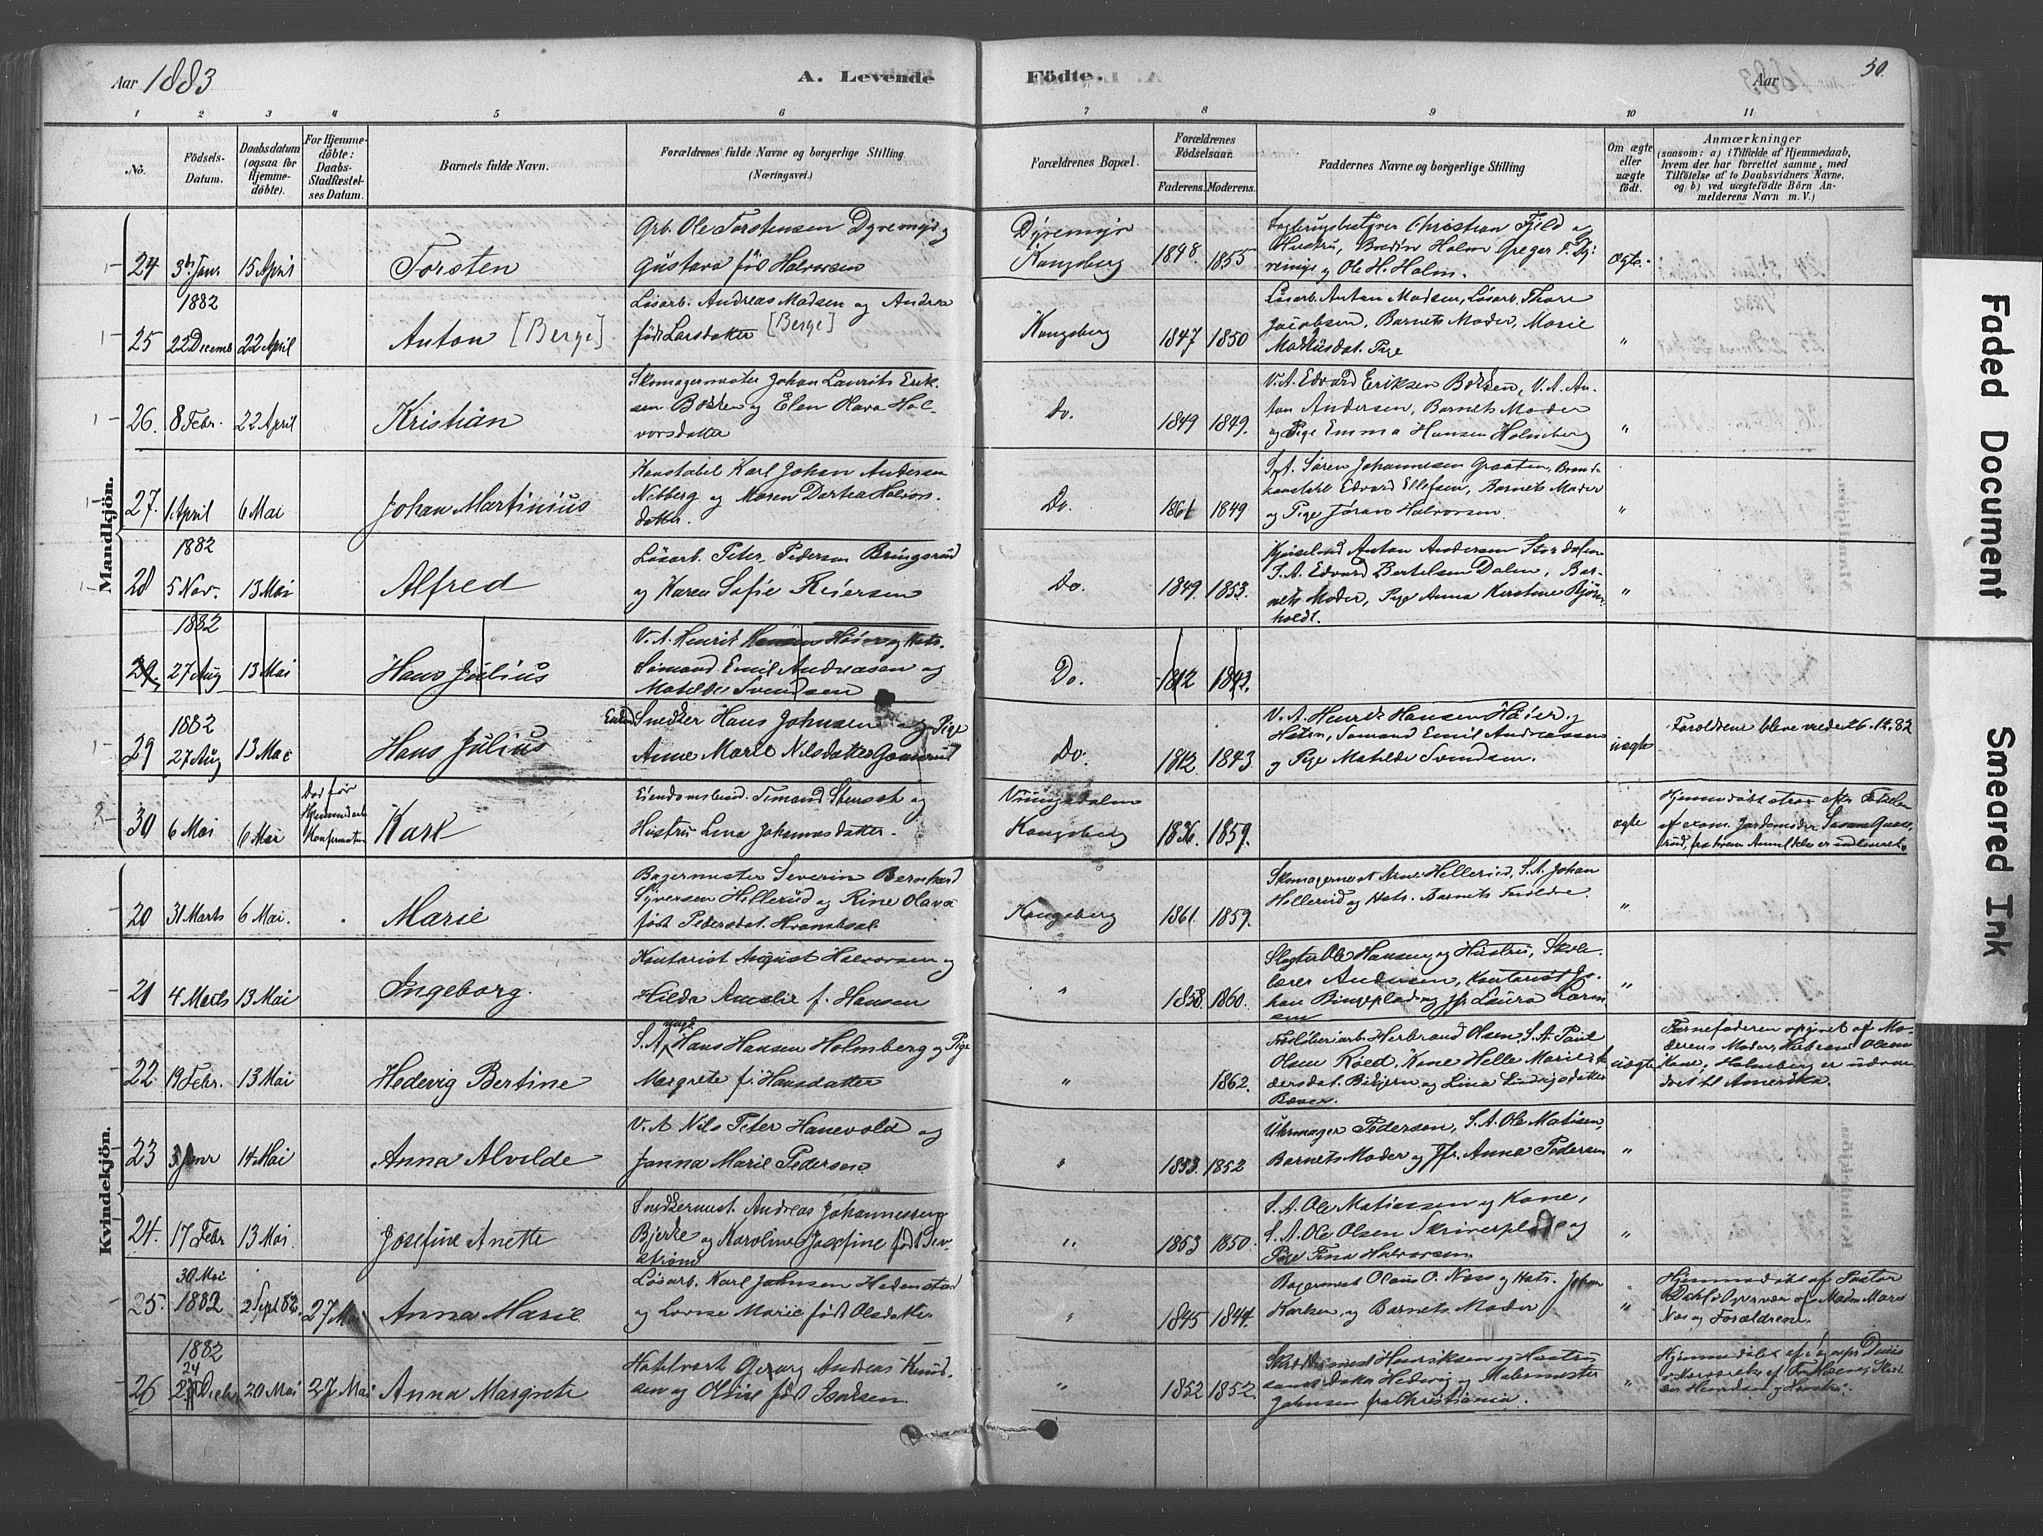 Aar 1883
A. Levende
Födte.
Aar
50.
1 2 3 4 5 6 7 8 9 10 11
No.
Födsels-
Datum.
Daabsdatum
(ogsaa for
Hjemme-
döbte).
For Hjemme-
döbte:
Daabs-
Stadfæstel-
ses Datum.
Barnets fulde Navn.
Forældrenes fulde Navne og borgerlige Stilling
(Næringsvei.)
Forældrenes Bopæl.
Forældrenes
Födselsaar.
Faderens. Moderens.
Faddernes Navne og borgerlige Stilling
Om ægte
eller
uægte
födt.
Anmærkninger
(saasom: a) i Tilfælde af Hjemmedaab,
hvem der har forrettet samme, med
Tilföielse af to Daabsvidners Navne,
og b) ved uægtefödte Börn An-
melderens Navn m. V.)
Mandkjön.
24 3 Janr 15 April
Torsten
Grb. Ole Torstensen Dyremyr og
Gustava föd Halvorsen
Dyremyr
Kongsberg
1848. 1855
Christian Fjeld og
Hustru, Holm Gregar T. Dy-
remyr og Ole H. Holm.
ægte.
1882
25 22 Decemb 22 April
Anton [Berge]
Lösarb. Andreas Madsen og Andrea
födt Larsdatter [Berge]
Kongsberg
1847 1850
Lösarb. Anton Madsen, Lösarb. Thore
Jacobsen, Barnets Moder, Marie
Markusdat. Pige
"
26. 8 Febr. 22 April
Kristian
Skomagermester Johan Laurits Erik-
sen og Elen Olava Hal-
vorsdatter
Do.
1849 1849.
V. A. Edvard Eriksen V. A. An-
ton Andersen, Barnets Moder
og Pige Emma Hansen Holmberg
"
27. 1 April 6 Mai
Johan Martinius
Konstabel Karl Johan Andersen
og Maren Dortea Halvors-
datter.
Do.
1861 1849
S. A. Sören Johannesen Graaten, Brand-
konstabl Edvard Ellefsen, Barnets Moder
og Pige Jöran Halvorsen.
"
1882
28 5 Nov. 13 Mai
Alfred
Lösarb. Peter Pedersen Bringsrud
og Karen Sofie Reiersen
Do.
1849. 1853.
Anton Andersen
S. A. Edvard Bertelsen Dalen, Bar-
nets Moder, Pige Anna Kirstine
holdt.
"
1882
29. 27 Aug 13 Mai
Hans Julius
V. A. Henrik Hansen Höier og Hstr.
Sömand Emil Andreasen og
Matilde Svendsen
Do.
1812 1843.
1882
29 27 Aug 13 Mai
Hans Julius
Snedker Hans Johnsen og Pige
Anne Marie Nilsdatter
Do.
1812. 1843
V. A. Henrik Hansen Höier og
Hstru, Sömand Emil Andreassen
og Pige Matilde Svendsen.
uægte
Forældrene bleve viede 26.12.82
30 6 Mai 6 Mai
Död før
Hjemmedaabs
Konfirmation
Karl
og
Hustru Lina Johannesdatter.
Kongsberg
1836. 1859.
ægte
Hjemmedöbt strax efter Födselen
af exam. Jordemoder
Kvindekjön.
20 31 Marts 6 Mai.
Marie
Bagermester Severin Bernhard
Syversen Hellerud og Rine Olava
födt Pedersdat.
Kongsberg
1861. 1859.
Skomagermest Arne Hellerud, S. A. Johan
Hellerud og Hstr. Barnets Forældre
"
21 4 Marts 13 Mai
Ingeborg.
Kontorist August Halvorsen og
Hilda Amalie f. Hansen
"
1858. 1860.
Slagter Ole Hansen og Hustru, Skole-
lærer Andersen, Kontorist Jo-
han Bingeplads og Jfr. Laura Larn-
sen
"
22 19 Febr. 13 Mai
Hedevig Bertine
S. A. Hans Hansen Holmberg og Pige
Margrete f. Hansdatter
"
1862.
Herbrand Olsen, S. A. Paul
Olsen Röed, Kone Helle Marie
og Lina Ludvigsdatter
uægte
Barnefaderen opgivet af Mo-
derens Moder, Herbrand Olsens
Kone, Holmberg er udvan-
dret til Amerika.
23 3 Janr 14 Mai
Anna Alvilde
V. A Nils Peter Hanevold og
Janna Marie Pedersen
"
1853. 1852
Uhrmager Pedersen, S. A. Ole Matisen,
Barnets Moder og Jfr. Anna Pedersen
"
24. 17 Febr 13 Mai.
Josefine Anette
Snedkermest. Andreas Johannessen
Bjerke og Karoline Josefine födt
"
1853 1850.
S. A. Ole Matiassen og Kone,
S. A. Ole Olsen Skriverplads og
Pige Tina Halvorsen.
"
30 Mai
25. 1882 2 Sept 82 27 Mai
Anna Marie
Lösarb. Karl Johnsen Hedenstad
og Lovise Marie født Olsdatter
"
1845 1844.
Bagermest Olaus O. Næss og Hstr. Johan
Karlsen, og Barnets Moder
"
Hjemmedöbt af Pastor
Dahl i Overvær af Madm Marie
Næs og Forældrene.
1882
24
26 Decbr 20 Mai 27 Mai
Anna Margrete
Georg Andreas Knud-
sen og Oline född Isaksen
"
1852 1852.
Henriksen og Hustru
samt Hedevig og Malermester
Johnsen fra Christiania.
"
Hjemmedöbt af
Faded Document
Smeared Ink